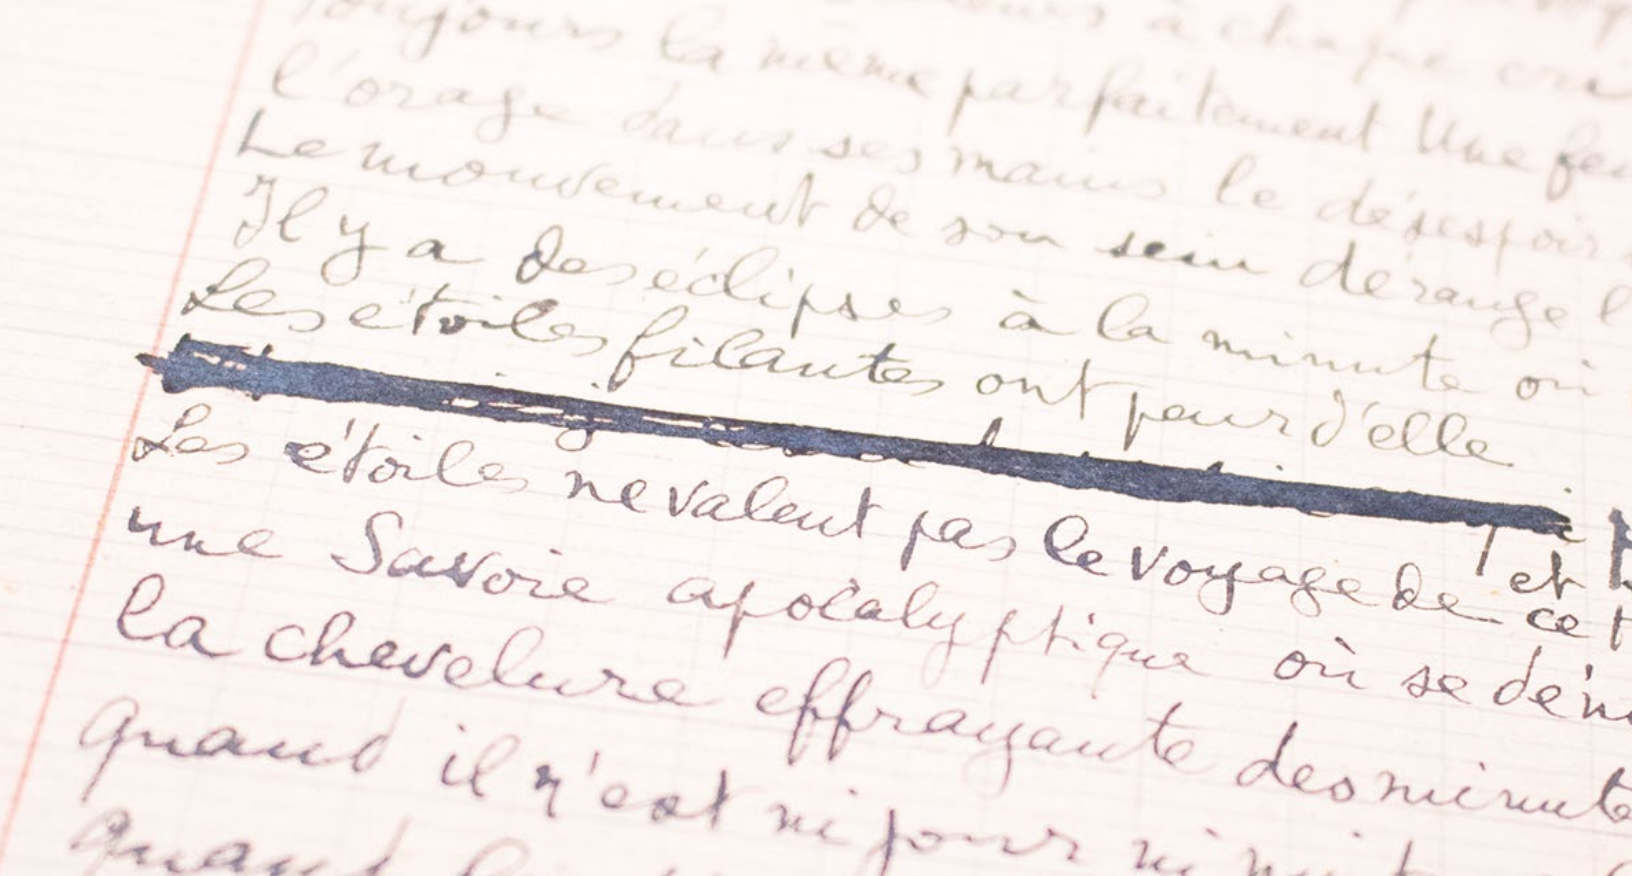 à chaque
toujours la même parfaitement Une
l'orage dans ses mains le désespoir
Le mouvement de son sein dérange l
Il y a des éclipses à la minute où
Les étoiles filantes ont peur d'elle
et
Les étoiles ne valent pas le voyage de ce
une Savoie apocalyptique où se dén
La chevelure effrayante des minute
quand il n'est ni jour ni nuit
quand